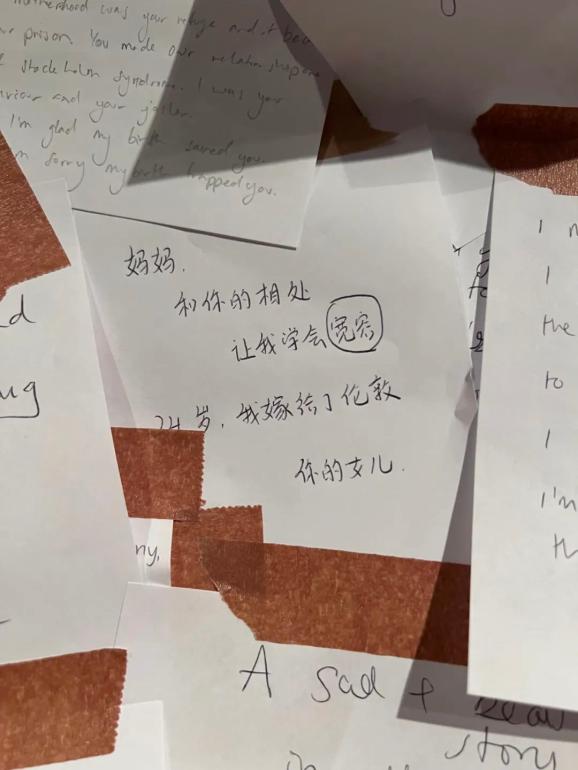 motherhood was your refuge and it
prison. You made our relationship
stockholm syndrome. I was your
and your jailer.
I'm glad my birth saved you.
sorry my birth trapped you.
妈妈.
和你的相处
让我学会宽容
24岁,我嫁给了伦敦
你的女儿.
ny,
A sad +
story
I
I
the
to
I
I'm